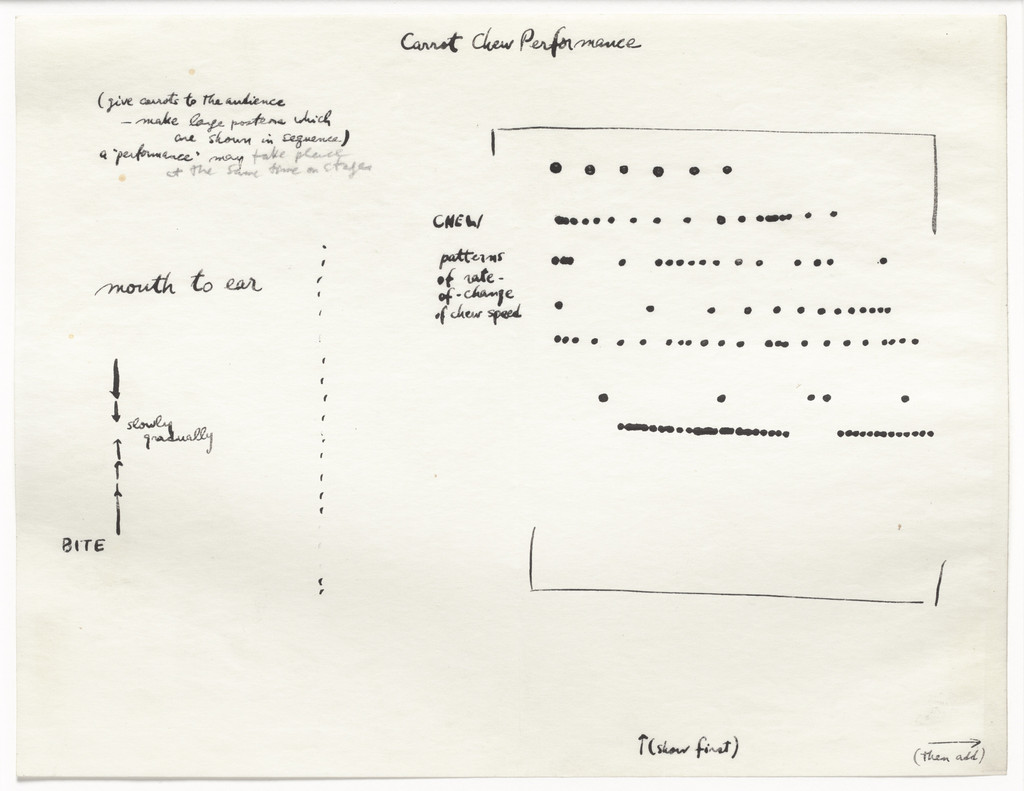 Carrot Chew Performance
(give carrots to the audience
– make large posters which
are shown in sequence)
a "performance" may take place
at the same time on stage
CHEW
patterns
of rate-
of-change
of chew speed
mouth to ear
slowly
gradually
BITE
↑(show first)
(then add)